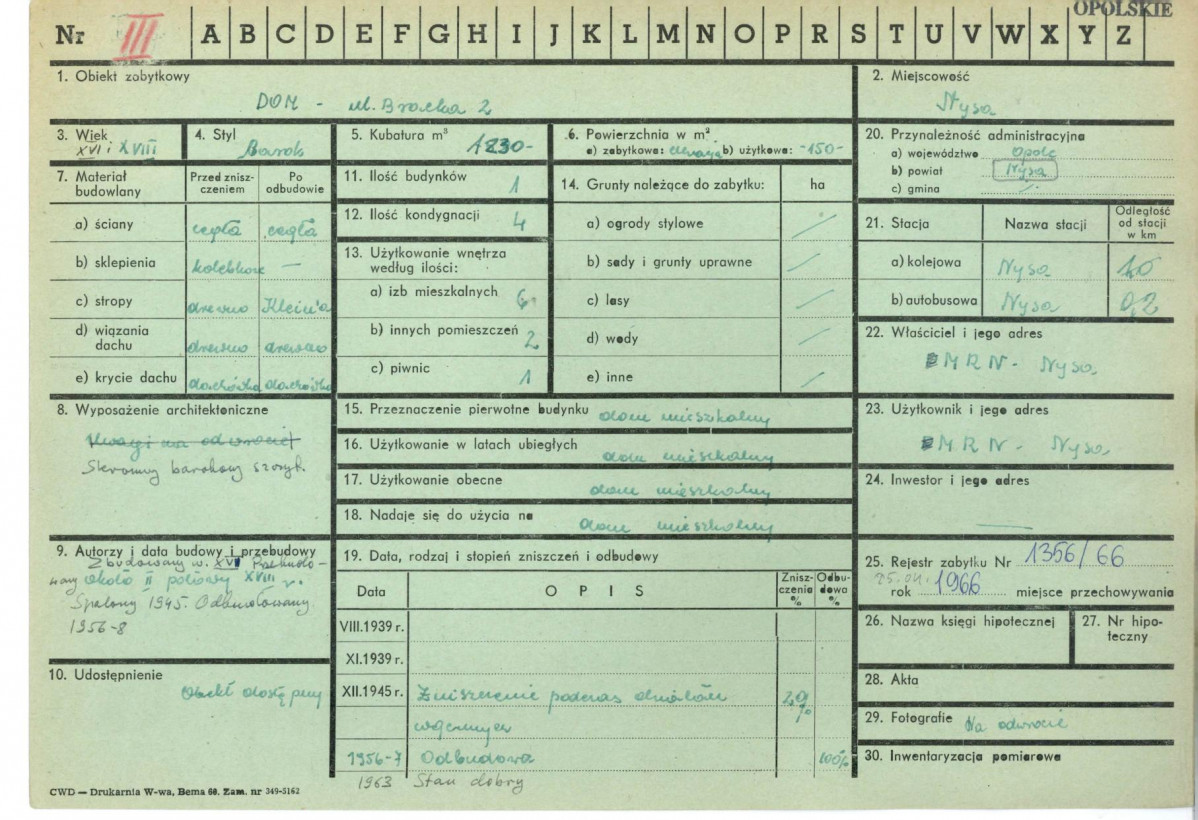 OPOLSKIE
Nr III A B C D E F G H I J K L M N O P R S T U V W X Y Z
1. Obiekt zabytkowy
DOM - ul. Bracka 2
2. Miejscowość
Nysa
3. Wiek
XVI i XVIII
4. Styl
Barok
5. Kubatura m³
1830-
6. Powierzchnia w m²
a) zabytkowa: b) użytkowa: -150-
7. Materiał budowlany
Przed zniszczeniem
Po odbudowie
a) ściany cegła cegła
b) sklepienia kolebkowe —
c) stropy drewno Klein'a
d) wiązania dachu drewno drewno
e) krycie dachu dachówka dachówka
8. Wyposażenie architektoniczne
Uwagi na odwrocie
Skromny barokowy szczyt.
9. Autorzy i data budowy i przebudowy
Zbudowany w. XVI Przebudo-
wany około II połowy XVIII w.
Spalony 1945. Odbudowany
1956-8
10. Udostępnienie
Obiekt dostępny
11. Ilość budynków 1
12. Ilość kondygnacji 4
13. Użytkowanie wnętrza według ilości:
a) izb mieszkalnych 6
b) innych pomieszczeń 2
c) piwnic 1
14. Grunty należące do zabytku: ha
a) ogrody stylowe /
b) sady i grunty uprawne /
c) lasy /
d) wody /
e) inne /
15. Przeznaczenie pierwotne budynku dom mieszkalny
16. Użytkowanie w latach ubiegłych dom mieszkalny
17. Użytkowanie obecne dom mieszkalny
18. Nadaje się do użycia na dom mieszkalny
19. Data, rodzaj i stopień zniszczeń i odbudowy
Data OPIS Zniszczenia % Odbudowa %
VIII.1939 r.
XI.1939 r.
XII.1945 r. Zniszczenie podczas działań 20%
wojennych
1956-7 Odbudowa 100%
1963 Stan dobry
20. Przynależność administracyjna
a) województwo Opole
b) powiat Nysa
c) gmina
21. Stacja Nazwa stacji Odległość od stacji w km
a) kolejowa Nysa 1,0
b) autobusowa Nysa 0,2
22. Właściciel i jego adres
MRN - Nysa
23. Użytkownik i jego adres
MRN - Nysa
24. Inwestor i jego adres
—
25. Rejestr zabytku Nr 1356/66
25.04. rok 1966 miejsce przechowywania
26. Nazwa księgi hipotecznej
27. Nr hipoteczny
28. Akta
29. Fotografie Na odwrocie
30. Inwentaryzacja pomiarowa
CWD — Drukarnia W-wa, Bema 60. Zam. nr 349-5162